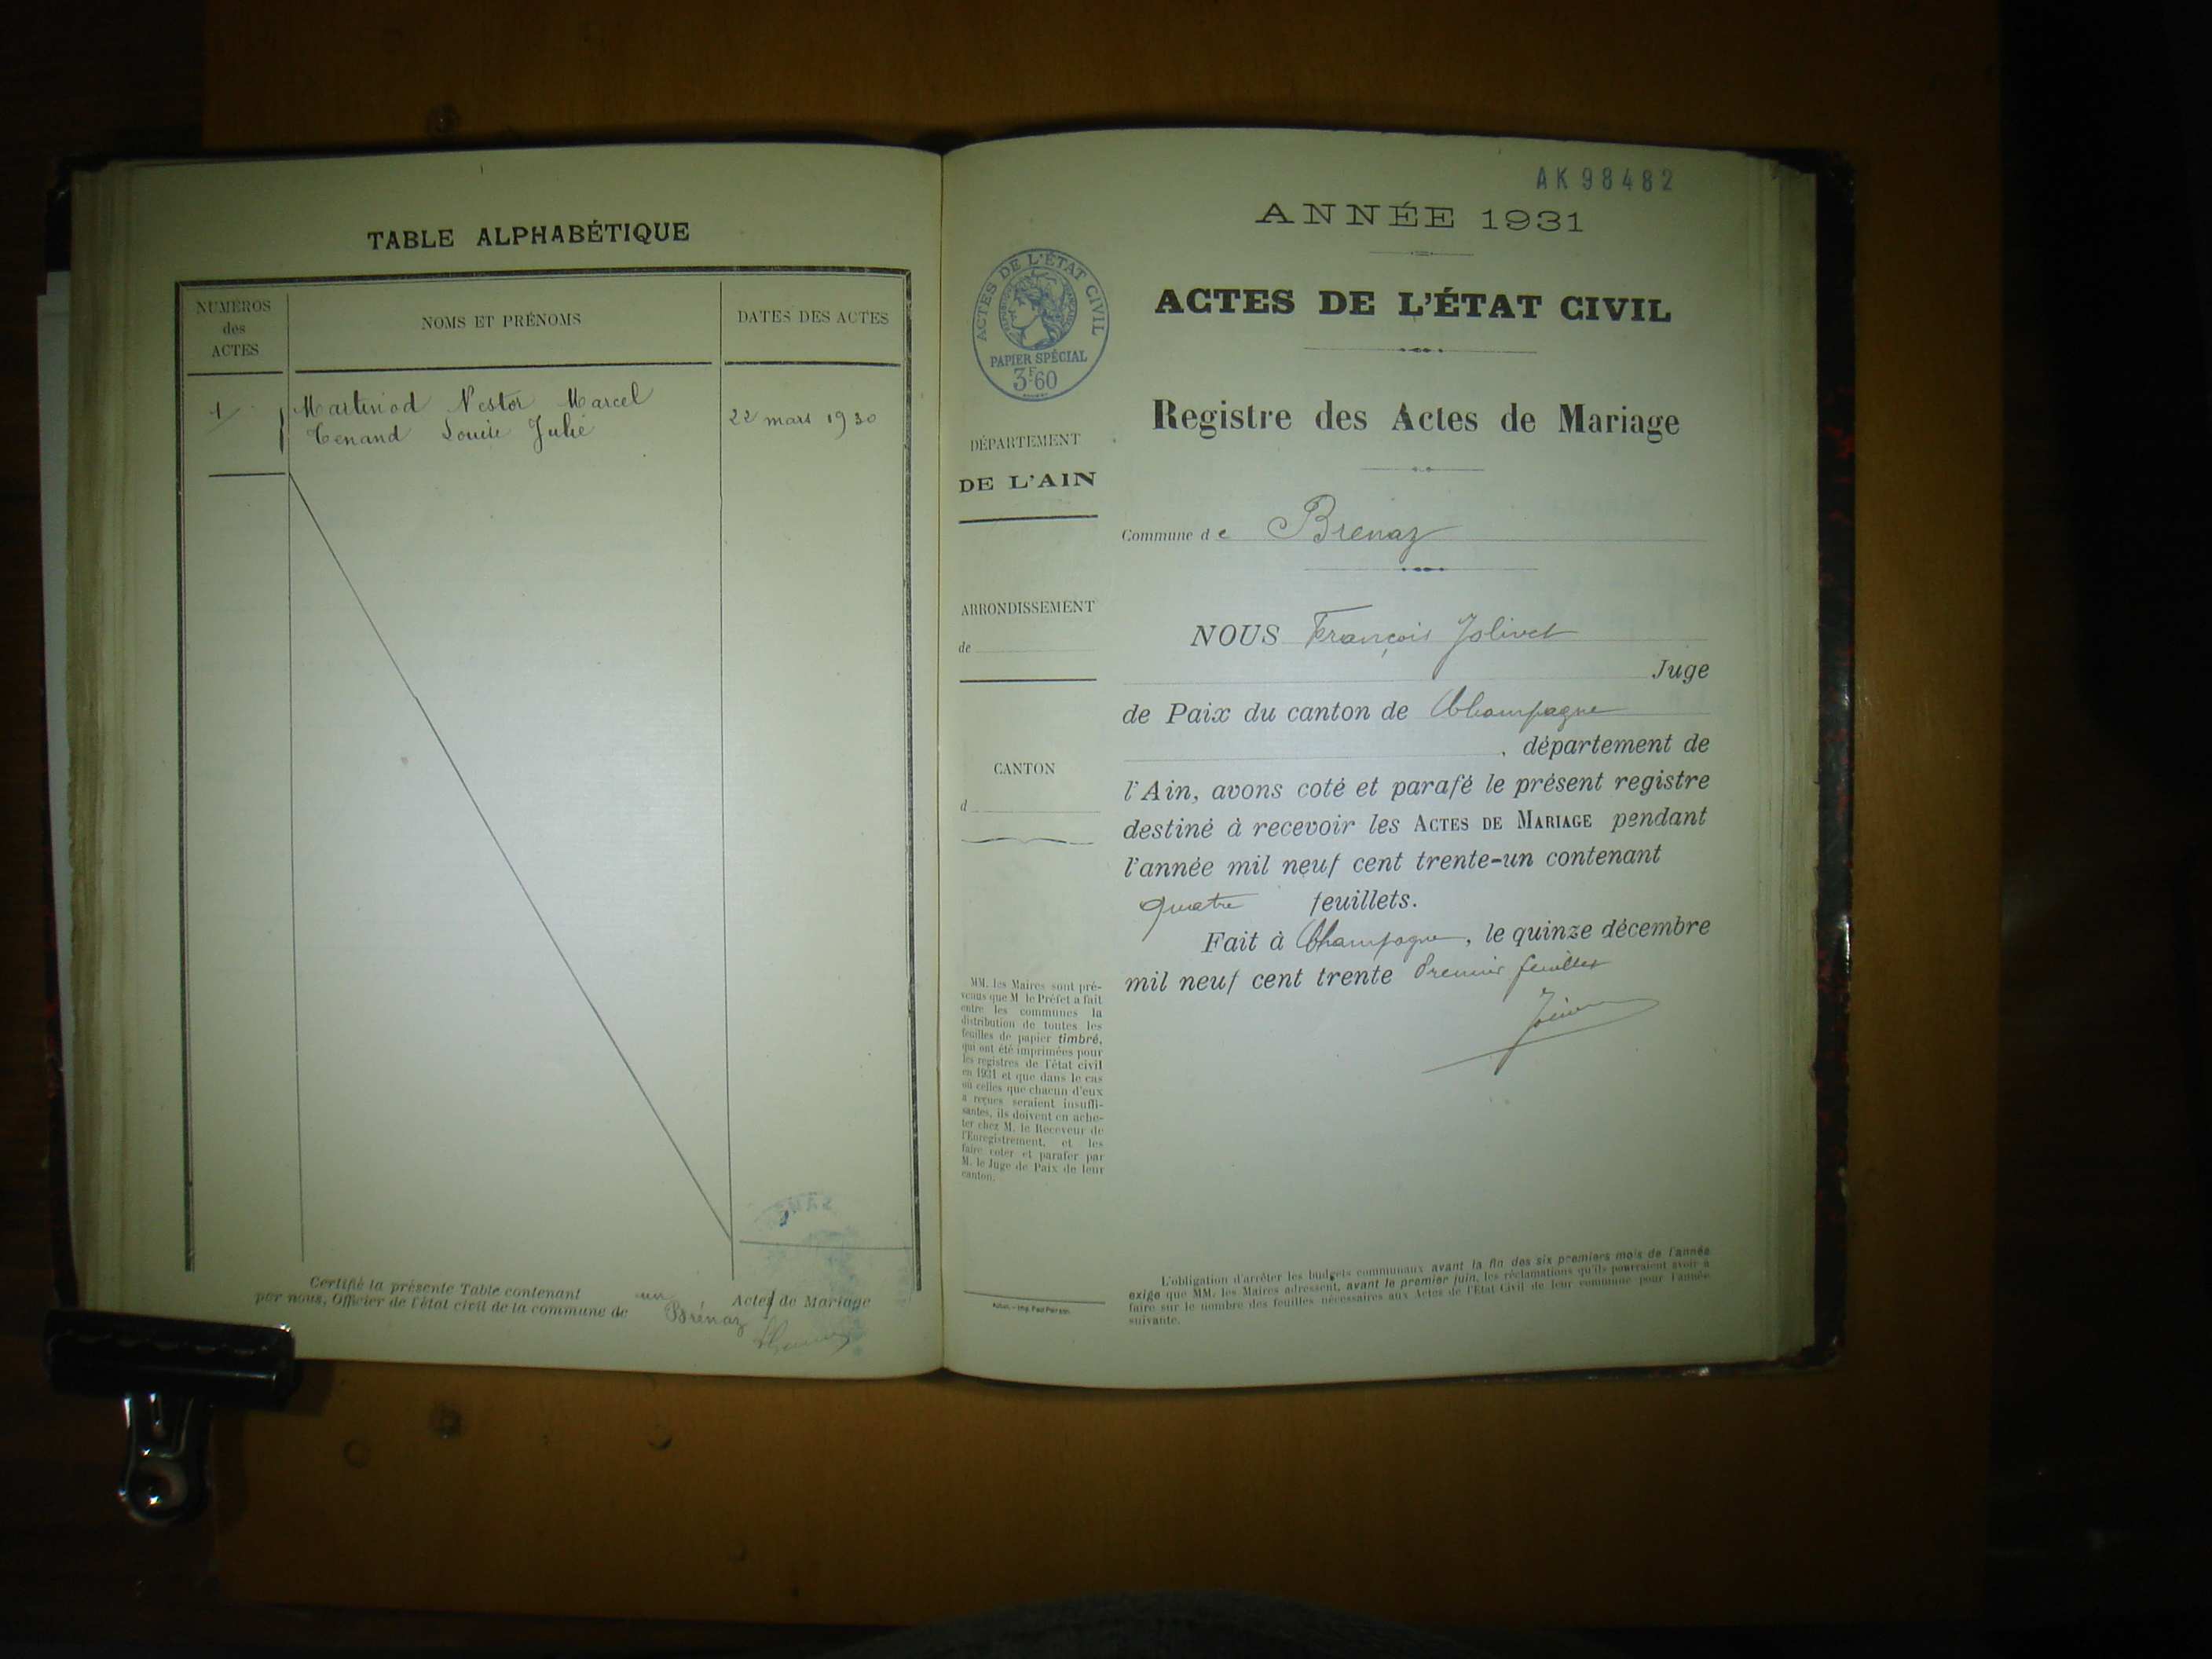 TABLE ALPHABÉTIQUE
NUMÉROS
des
ACTES
NOMS ET PRÉNOMS
DATES DES ACTES
1
Martinod Nestor Marcel
Tenand Louise Julie
22 mars 1930
Certifié la présente Table contenant un Actes de Mariage
par nous, Officier de l'état civil de la commune de Brénaz
AK 98482
ANNÉE 1931
ACTES DE L'ÉTAT CIVIL
PAPIER SPÉCIAL
3F60
DÉPARTEMENT
DE L'AIN
ARRONDISSEMENT
de
CANTON
d
MM. les Maires sont pré-
venus que M. le Préfet a fait
entre les communes la
distribution de toutes les
feuilles de papier timbré,
qui ont été imprimées pour
les registres de l'état civil
en 1931 et que dans le cas
où celles que chacun d'eux
a reçues seraient insuffi-
santes, ils doivent en ache-
ter chez M. le Receveur de
l'Enregistrement, et les
faire coter et parafer par
M. le Juge de Paix de leur
canton.
ACTES DE L'ÉTAT CIVIL
Registre des Actes de Mariage
Commune de Brenaz
NOUS François Jolivet
Juge
de Paix du canton de Champagne
, département de
l'Ain, avons coté et parafé le présent registre
destiné à recevoir les ACTES DE MARIAGE pendant
l'année mil neuf cent trente-un contenant
quatre feuillets.
Fait à Champagne, le quinze décembre
mil neuf cent trente Premier feuillet
L'obligation d'arrêter les budgets communaux avant la fin des six premiers mois de l'année
exige que MM. les Maires adressent, avant le premier juin, les réclamations qu'ils pourraient avoir à
faire sur le nombre des feuilles nécessaires aux Actes de l'État Civil de leur commune pour l'année
suivante.